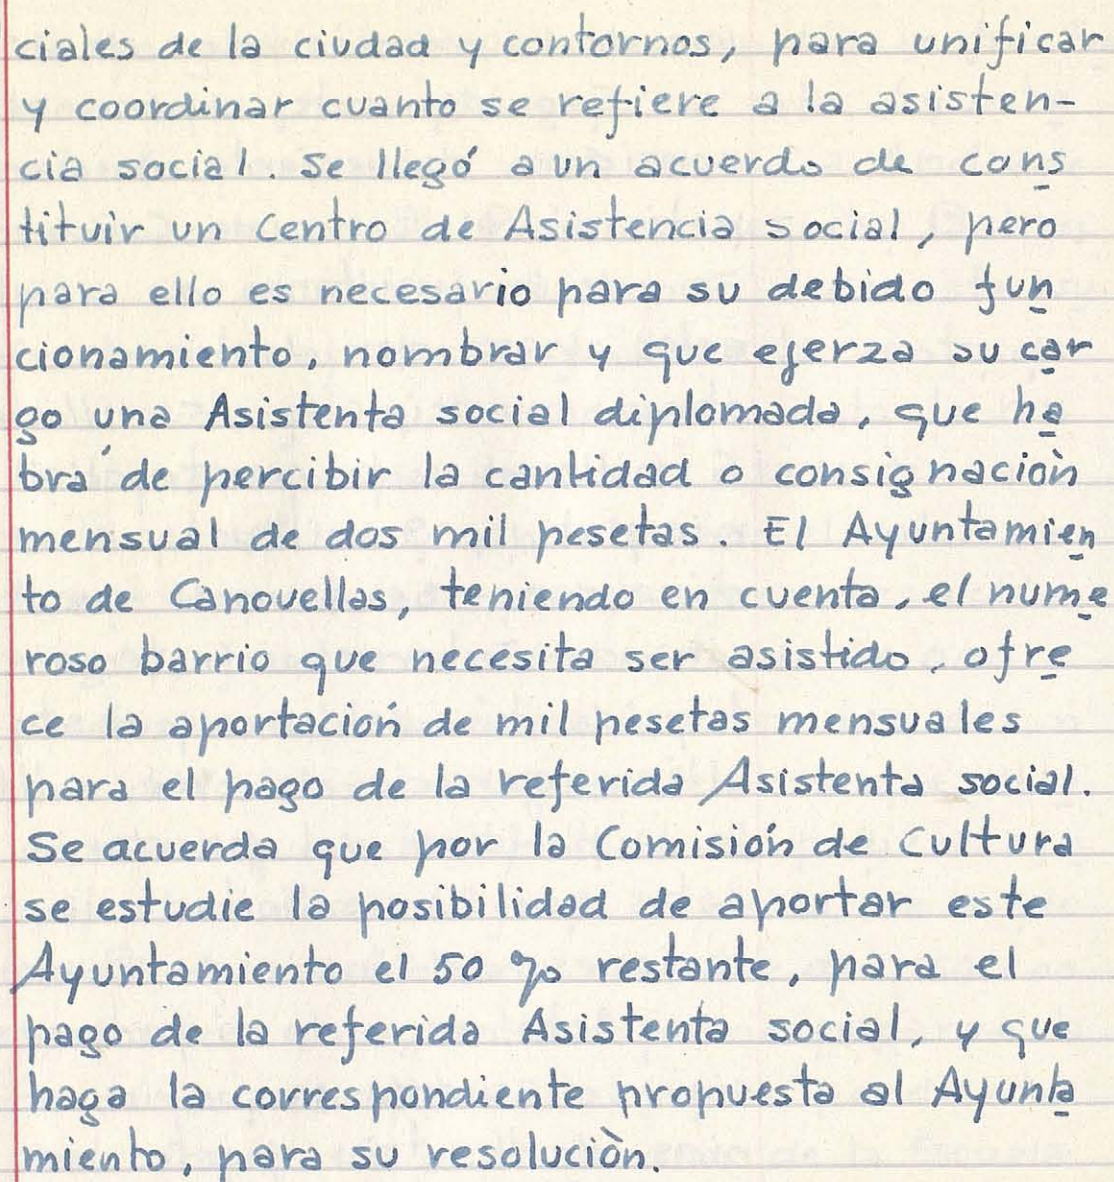 ciales de la ciudad y contornos, para unificar
y coordinar cuanto se refiere a la asisten-
cia social. Se llegó a un acuerdo de cons
tituir un Centro de Asistencia social, pero
para ello es necesario para su debido fun
cionamiento, nombrar y que ejerza su car
go una Asistenta social diplomada, que ha
brá de percibir la cantidad o consignación
mensual de dos mil pesetas. El Ayuntamien
to de Canovellas, teniendo en cuenta, el nume
roso barrio que necesita ser asistido, ofre
ce la aportación de mil pesetas mensuales
para el pago de la referida Asistenta social.
Se acuerda que por la Comisión de Cultura
se estudie la posibilidad de aportar este
Ayuntamiento el 50 % restante, para el
pago de la referida Asistenta social, y que
haga la correspondiente propuesta al Ayunta
miento, para su resolución.